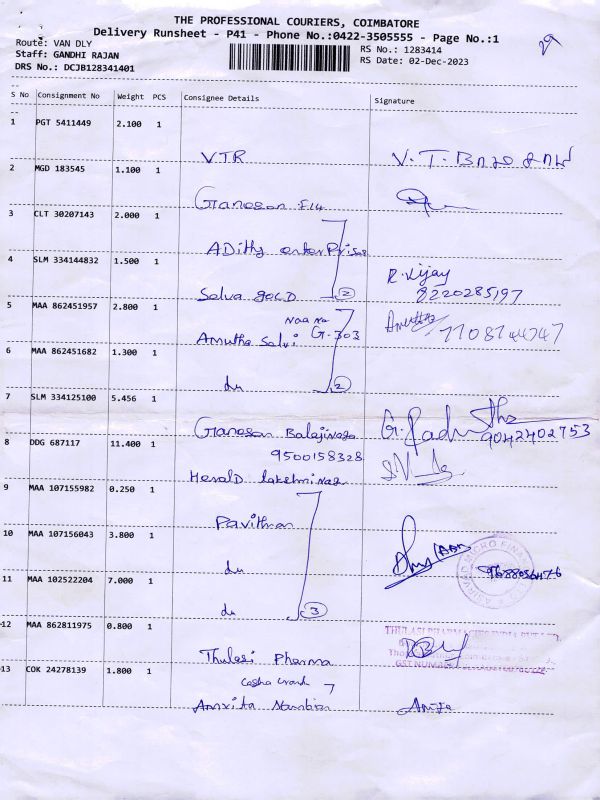 THE PROFESSIONAL COURIERS, COIMBATORE
Delivery Runsheet - P41 - Phone No.:0422-3505555 - Page No.:1
Route: VAN DLY
Staff: GANDHI RAJAN
DRS No.: DCJB128341401
RS No.: 1283414
RS Date: 02-Dec-2023
S No Consignment No Weight PCS Consignee Details Signature
1 PGT 5411449 2.100 1
VTR
2 MGD 183545 1.100 1
Ganesan
3 CLT 30207143 2.000 1
Adithy enterprises
4 SLM 334144832 1.500 1
Selva gold 2 R. Vijay
8220285197
5 MAA 862451957 2.800 1
Amutha Selvi G-303
6 MAA 862451682 1.300 1
du 2
7 SLM 334125100 5.456 1
Ganesan
9042402753
8 DDG 687117 11.400 1
9500158328
Herald
9 MAA 107155982 0.250 1
Pavithran
10 MAA 107156043 3.800 1
du
11 MAA 102522204 7.000 1
du 3
12 MAA 862811975 0.800 1
Thulasi Pharma
13 COK 24278139 1.800 1
Amrita